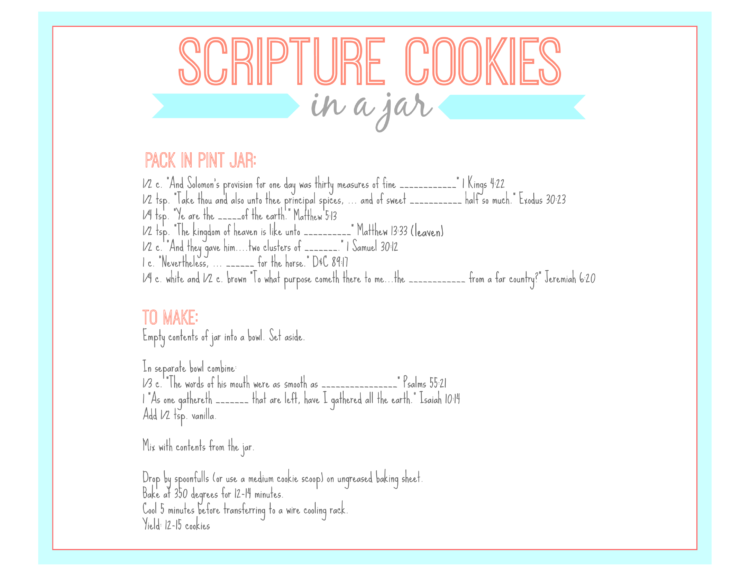 SCRIPTURE COOKIES
in a jar
PACK IN PINT JAR:
1/2 c. "And Solomon's provision for one day was thirty measures of fine ____________" 1 Kings 4:22
1/2 tsp. "Take thou and also unto thee principal spices, ... and of sweet ___________ half so much." Exodus 30:23
1/4 tsp. "Ye are the _____of the earth." Matthew 5:13
1/2 tsp. "The kingdom of heaven is like unto __________" Matthew 13:33 (leaven)
1/2 c. "And they gave him....two clusters of _______." 1 Samuel 30:12
1 c. "Nevertheless, ... ______ for the horse." D&C 89:17
1/4 c. white and 1/2 c. brown "To what purpose cometh there to me...the ____________ from a far country?" Jeremiah 6:20
TO MAKE:
Empty contents of jar into a bowl. Set aside.
In separate bowl combine:
1/3 c. "The words of his mouth were as smooth as ________________" Psalms 55:21
1 "As one gathereth _______ that are left, have I gathered all the earth." Isaiah 10:14
Add 1/2 tsp. vanilla.
Mix with contents from the jar.
Drop by spoonfulls (or use a medium cookie scoop) on ungreased baking sheet.
Bake at 350 degrees for 12-14 minutes.
Cool 5 minutes before transferring to a wire cooling rack.
Yield: 12-15 cookies